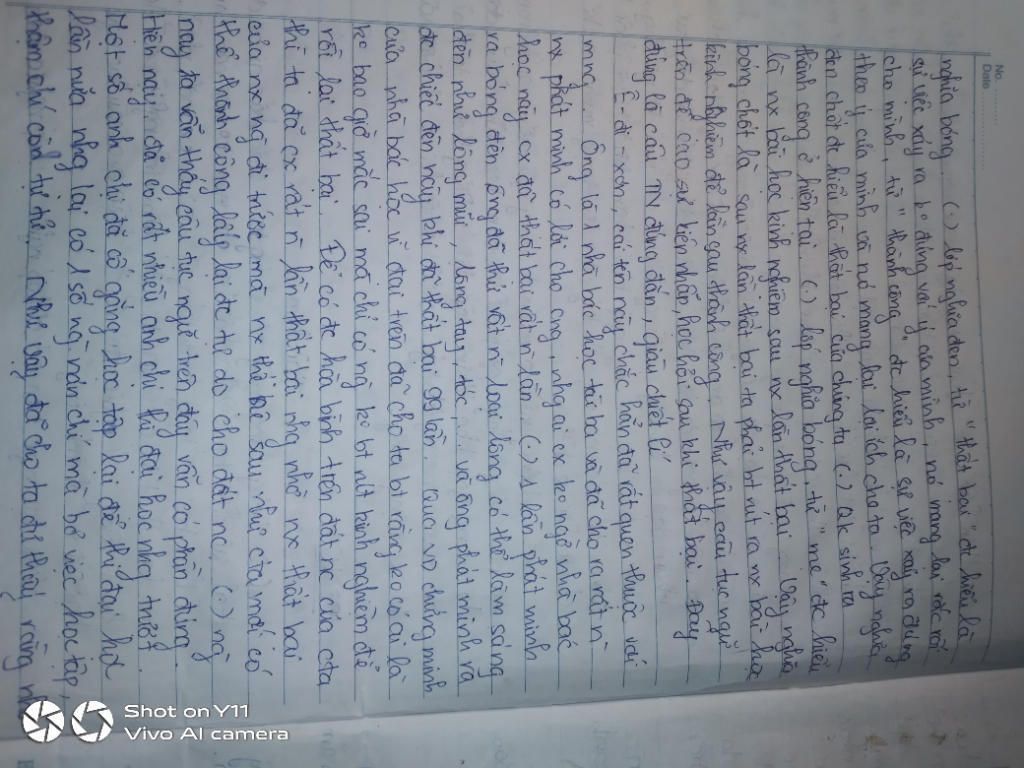 No.
Date
nghĩa bóng. (.) lớp nghĩa đen, từ "thất bại" đc hiểu là
sự việc xảy ra ko đúng với ý của mình, nó mang lại rắc rối
cho mình, từ "thành công" đc hiểu là sự việc xảy ra đúng
theo ý của mình và nó mang lại lợi ích cho ta. Vậy nghĩa
đen chốt đc hiểu là thất bại của chúng ta (.) qk sinh ra
thành công ở hiện tại. (.) lớp nghĩa bóng, từ "mẹ" đc hiểu
là nx bài học kinh nghiệm sau nx lần thất bại. Vậy nghĩa
bóng chốt là sau nx lần thất bại ta phải bt rút ra nx bài học
kinh nghiệm để lần sau thành công. Như vậy câu tục ngữ
trên đề cao sự kiên nhẫn, học hỏi sau khi thất bại. Đây
đúng là câu TN đúng đắn, giàu chiết lí
Ê-đi-xơn, cái tên này chắc hẳn đã rất quen thuộc với
mng. Ông là 1 nhà bác học tài ba và đã cho ra rất n`
nx phát minh có lợi cho cng, nhg ai cx ko ngờ nhà bác
học này cx đã thất bại rất n` lần. (.) 1 lần phát minh
ra bóng đèn ông đã thử rất n` loại lông có thể làm sáng
đèn như lông mũi, lông tay, tóc, và ông phát minh ra
đc chiếc đèn này khi đã thất bại 99 lần. Câu vd chứng minh
của nhà bác học vĩ đại trên đã cho ta bt rằng ko có ai là
ko bao giờ mắc sai mà chỉ có ng` ko bt rút kinh nghiệm để
rồi lại thất bại. Để có đc hòa bình trên đất nc của cta
thì ta đã cx rất n` lần thất bại nhg nhờ nx thất bại
của nx ng đi trước mà nx thế hệ sau như của mới có
thể thành công lấy lại đc tự do cho đất nc. (.) ng`
nay ta vẫn thấy câu tục ngữ trên đây vẫn có phần đúng.
Hiện nay đã có rất nhiều anh chị thi đại học nhg trượt.
Một số anh chị đã cố gắng học tập lại để thi đại học
lần nữa nhg lại có 1 số ng` nản chí mà bỏ việc học tập,
thậm chí còn tự tử. Như vậy đã cho ta đc thấy rằng
Shot on Y11
Vivo AI camera